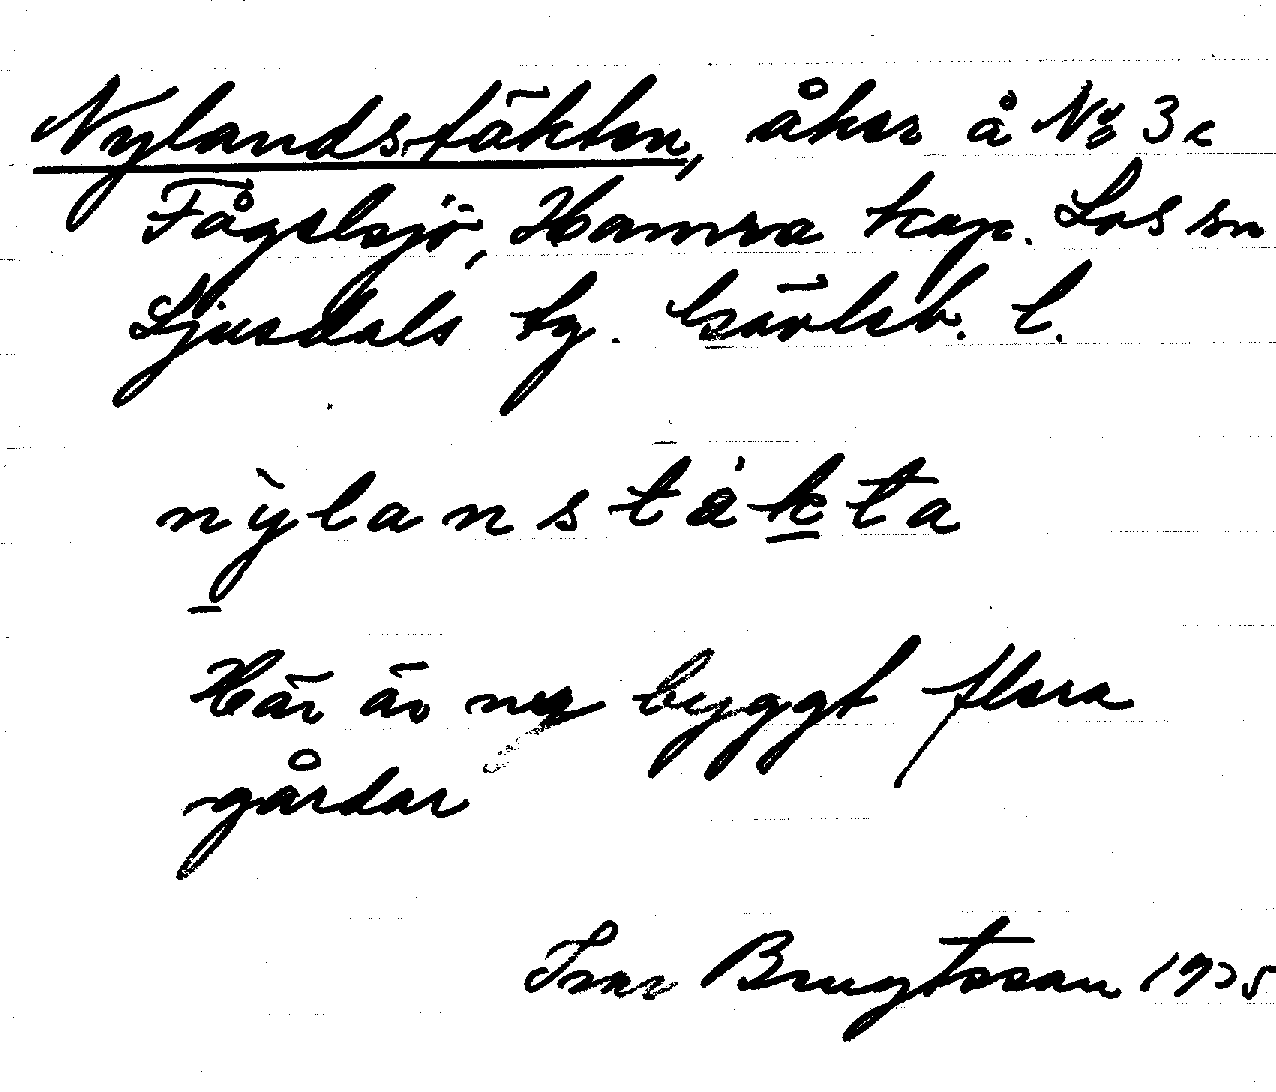 Nylandstäkten, åker å Nº 3c
Fågelsjö, Hamra kap. Los sn
Ljusdals tg. Gävleb. l.
nỳlanståkta
Här är nu byggt flera
gårdar
Ivar Bengtsson 1935